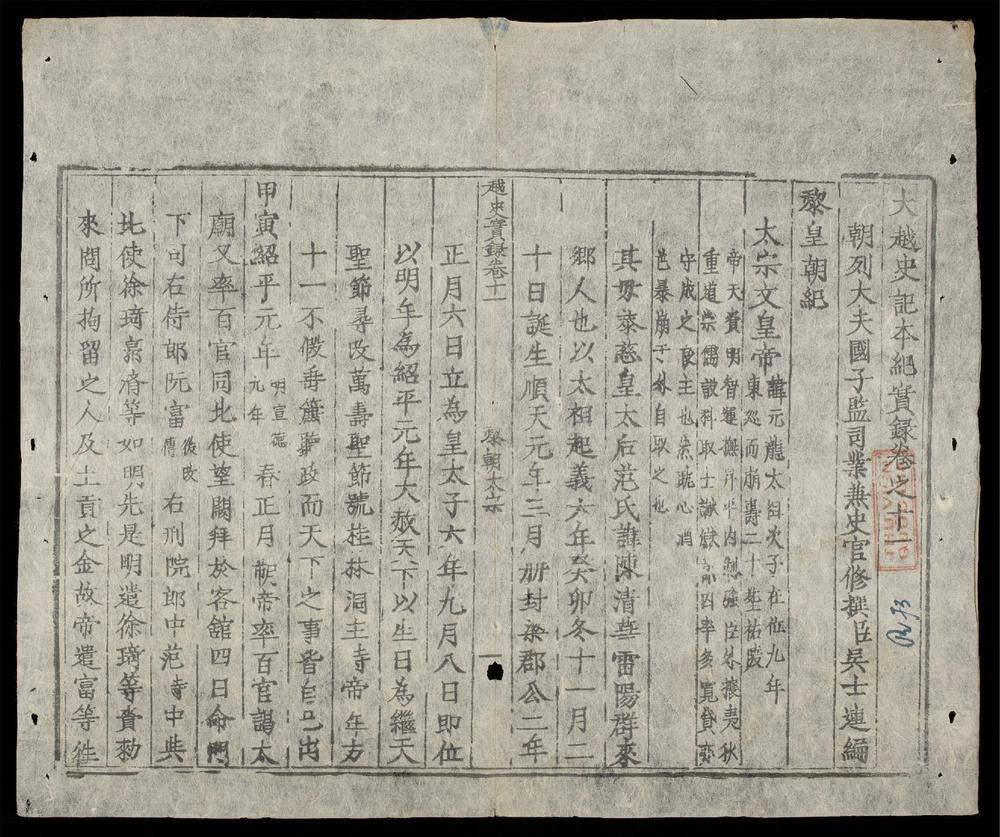 大越史記本紀實録卷之十一
朝列大夫國子監司業兼史官修撰臣吳士連編
黎皇朝紀
太宗文皇帝
諱元龍太祖次子在位九年
東巡而崩壽二十塟祐陵
帝天資明智運撫升平内制強臣外攘夷狄
重道崇儒設科取士讞獄四率多寬貸亦
守成之良主也然耽心酒
色暴崩于外自取之也
其母恭慈皇太后范氏諱陳清華雷陽群來
鄉人也以太祖起義六年癸卯冬十一月二
十日誕生順天元年三月册封梁郡公二年
越史實録卷十一
黎朝太宗
一
正月六日立為皇太子六年九月八日即位
以明年為紹平元年大赦天下以生日為繼天
聖節尋改萬壽聖節號桂林洞主寺帝年方
十一不假垂簾聽政而天下之事皆自己出
甲寅紹平元年
明宣德
九年
春正月朔帝率百官謁太
廟又率百官同北使望闕拜於客舘四日命門
下司右侍郎阮富
後改
傳
右刑院郎中范時中典
北使徐琦郭濟等如明先是明遣徐琦等賫勑
來閱所拘留之人及土貢之金故帝遣富等徃